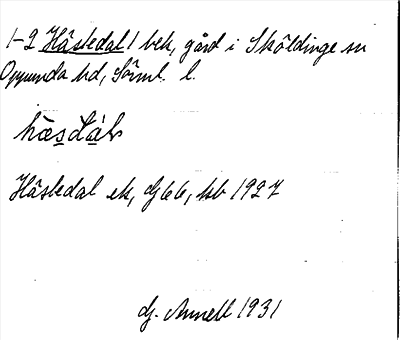 1-2 Hästedal 1 bek, gård i Sköldinge sn
Oppunda hd, Sörml. l.
Hästedal ek, Gj66, kb 1927
Gj. Annell 1931